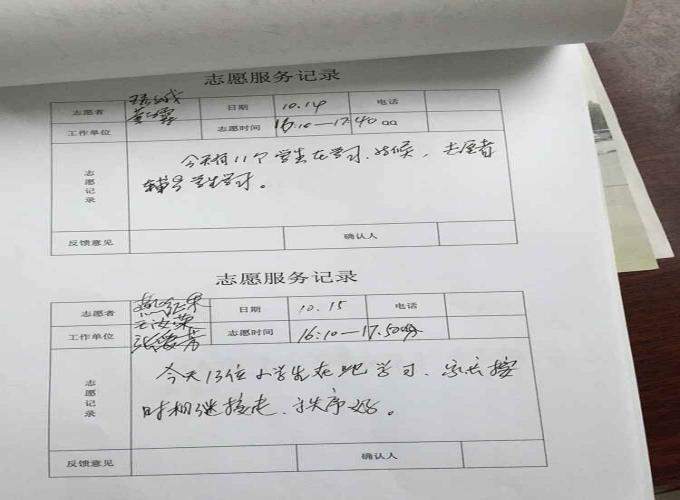 志愿服务记录
志愿者 日期 10.14 电话
工作单位 志愿时间 16:10—17:40
志愿记录 今天有11个学生在学习,
辅导学生学习。
反馈意见 确认人
志愿服务记录
志愿者 日期 10.15 电话
工作单位 志愿时间 16:10—17:50分
志愿记录 今天13位小学生在此学习、家长按
时相继接走、秩序好。
反馈意见 确认人